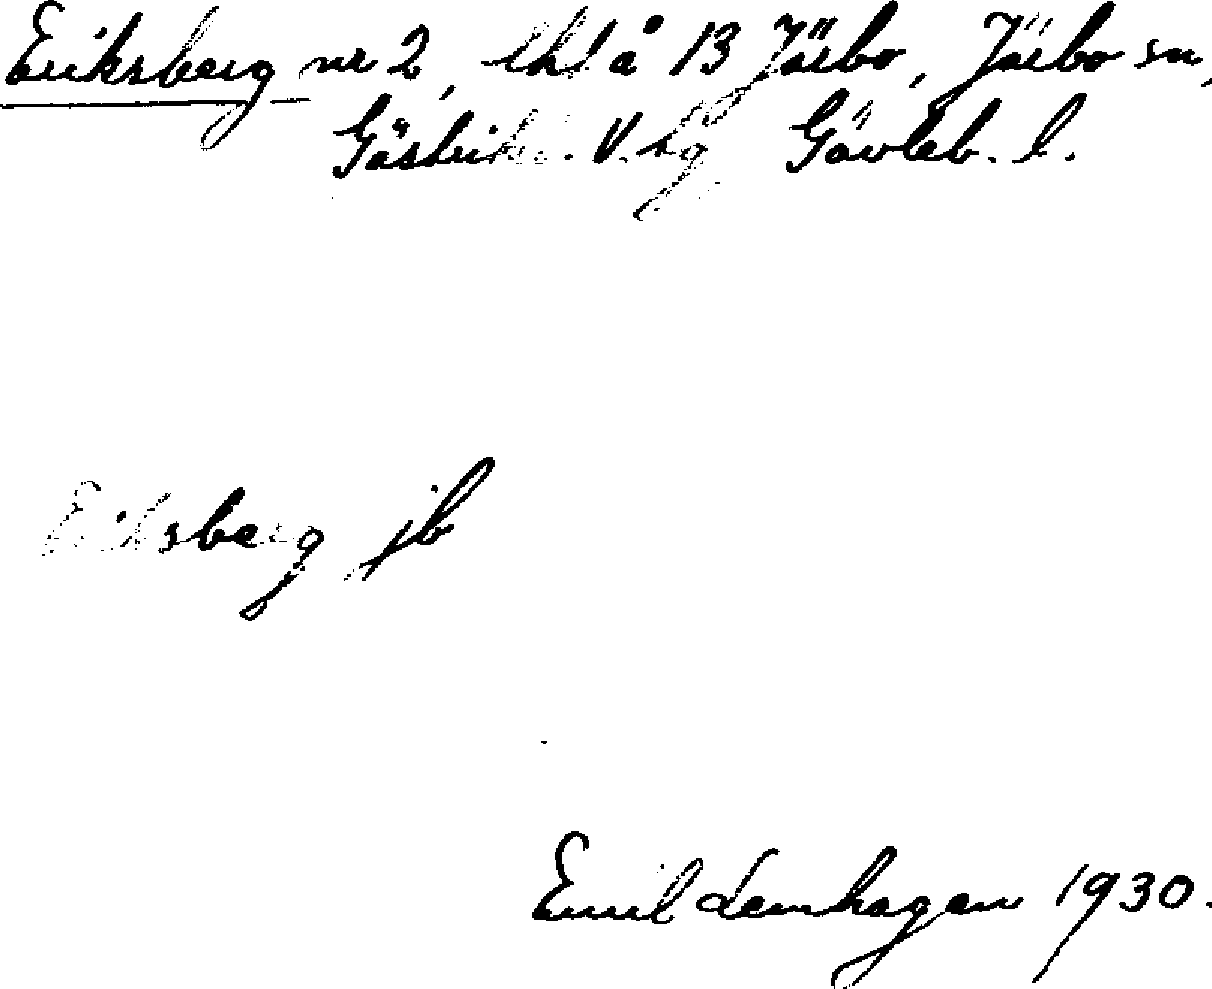 Eriksberg nr 2, lht å 13 Järbo, Järbo sn,
Gästrikl. V. tg Gävleb. l.
Eriksberg jb
Emil Lemhagen 1930.